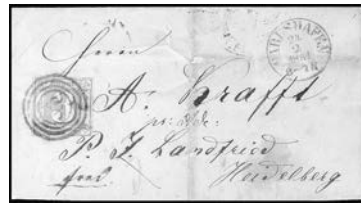 Herrn
CARLSHAFEN
A. Krafft
pr: Adr:
P. J. Landfried
frei
Heidelberg